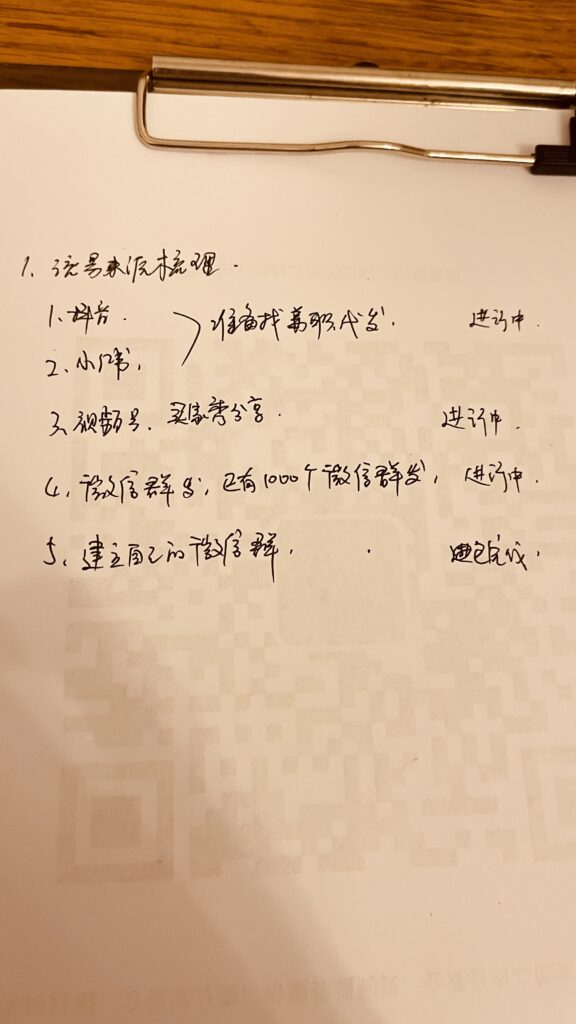 1、流量来源梳理.
1、抖音. 准备找兼职代发. 进行中.
2、小红书,
3、视频号、买家秀分享. 进行中.
4、微信群发, 已有1000个微信群发, 进行中.
5、建立自己的微信群, 已完成,